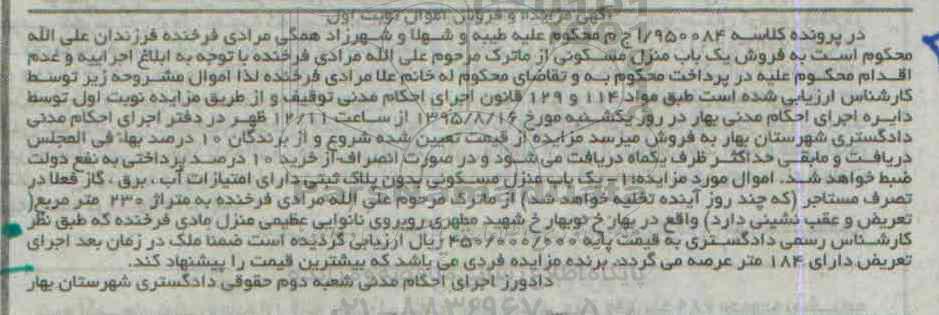 آگهی مزایده و فروش اموال نوبت اول
در پرونده کلاسه ۹۵۰۰۸۴/ا ج م محکوم علیه طیبه و شهلا و شهرزاد همگی مرادی فرخنده فرزندان علی الله
محکوم است به فروش یک باب منزل مسکونی از ماترک مرحوم علی الله مرادی فرخنده با توجه به ابلاغ اجراییه و عدم
اقدام محکوم علیه در پرداخت محکوم به و تقاضای محکوم له خانم علا مرادی فرخنده لذا اموال مشروحه زیر توسط
کارشناس ارزیابی شده است طبق مواد ۱۱۴ و ۱۲۹ قانون اجرای احکام مدنی توقیف و از طریق مزایده نوبت اول توسط
دایره اجرای احکام مدنی بهار در روز یکشنبه مورخ ۱۳۹۵/۸/۱۶ از ساعت ۱۲/۱۱ ظهر در دفتر اجرای احکام مدنی
دادگستری شهرستان بهار به فروش میرسد مزایده از قیمت تعیین شده شروع و از برندگان ۱۰ درصد بهاء فی المجلس
دریافت و مابقی حداکثر ظرف یکماه دریافت می شود و در صورت انصراف از خرید ۱۰ درصد پرداختی به نفع دولت
ضبط خواهد شد. اموال مورد مزایده:۱- یک باب منزل مسکونی بدون پلاک ثبتی دارای امتیازات آب ، برق ، گاز فعلا در
تصرف مستاجر (که چند روز آینده تخلیه خواهد شد) از ماترک مرحوم علی الله مرادی فرخنده به متراژ ۲۳۰ متر مربع(
تعریض و عقب نشینی دارد) واقع در بهار خ نوبهار خ شهید مطهری روبروی نانوایی عظیمی منزل مادی فرخنده که طبق نظر
کارشناس رسمی دادگستری به قیمت پایه ۴۵۰/۰۰۰/۰۰۰ ریال ارزیابی گردیده است ضمنا ملک در زمان بعد اجرای
تعریض دارای ۱۸۴ متر عرصه می گردد. برنده مزایده فردی می باشد که بیشترین قیمت را پیشنهاد کند.
دادورز اجرای احکام مدنی شعبه دوم حقوقی دادگستری شهرستان بهار